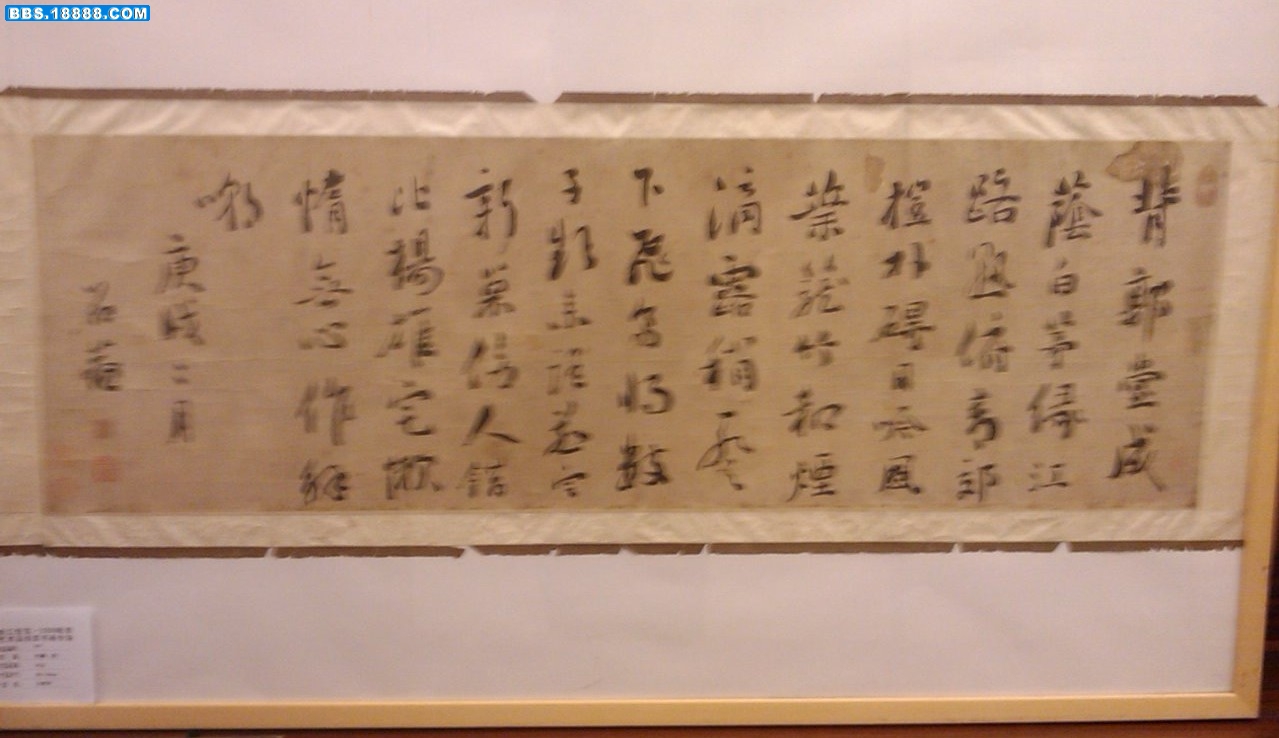 BBS.18888.COM
背郭堂成
蔭白茅緣江
路熟俯青郊
榿林礙日吟風
葉籠竹和煙
滴露稍
下飛烏將數
子頻來語燕定
新巢傍人錯
比楊雄宅懶
惰無心作解
嘲
庚戌二月
石菴